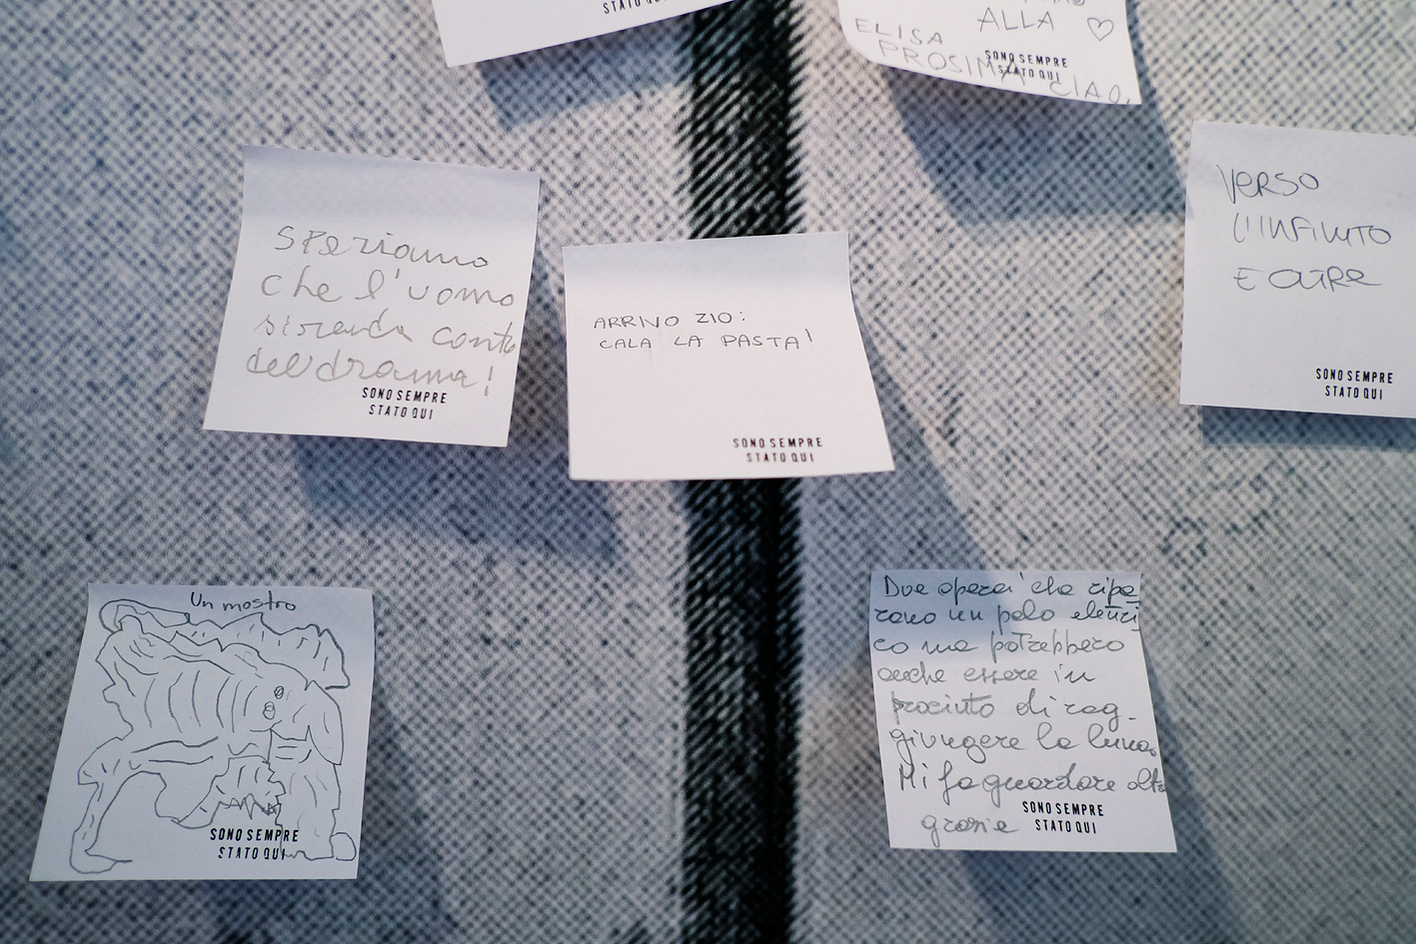 STATO QUI
ALLA ♡
ELISA
PROSIMA CIAO
SONO SEMPRE
STATO QUI
Speriamo
che l'uomo
si renda conto
del dramma!
SONO SEMPRE
STATO QUI
ARRIVO ZIO:
CALA LA PASTA!
SONO SEMPRE
STATO QUI
VERSO
L'INFINITO
E OLTRE
SONO SEMPRE
STATO QUI
Un mostro
SONO SEMPRE
STATO QUI
Due operai che ripa
rano un palo elettri
co ma potrebbero
anche essere in
procinto di rag-
giungere la luna.
Mi fa guardare oltre
grazie
SONO SEMPRE
STATO QUI